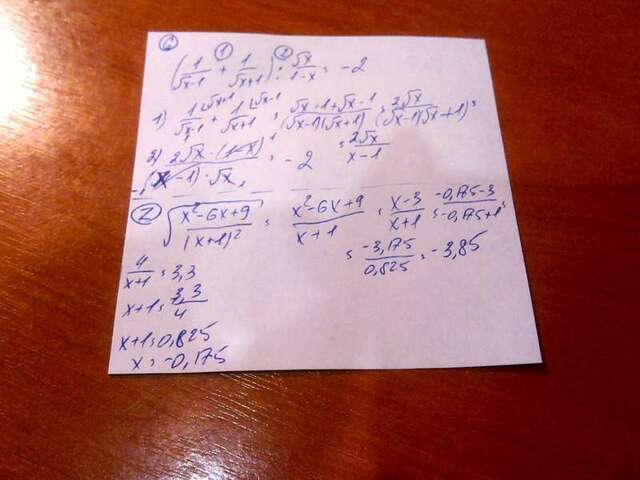 6
(1/(√x-1) + 1/(√x+1)) : √x/(1-x) = -2
1) 1/(√x-1) + 1/(√x+1) = (√x+1+√x-1)/((√x-1)(√x+1)) = 2√x/((√x-1)(√x+1)) =
= 2√x/(x-1)
2) 2√x·(1-x)/((x-1)·√x) = -2
7
√((x²-6x+9)/(x+1)²) = (x²-6x+9)/(x+1) = (x-3)/(x+1) = (-0,175-3)/(-0,175+1) =
= -3,175/0,825 = -3,85
4/(x+1) = 3,3
x+1 = 3,3/4
x+1 = 0,825
x = -0,175